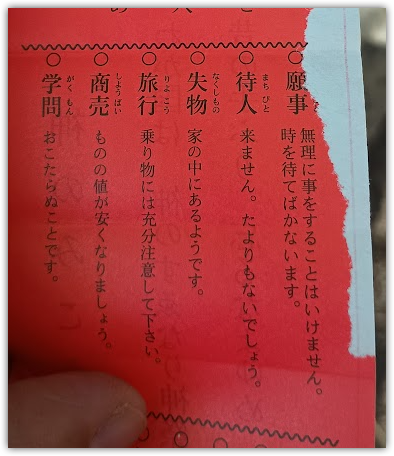 ○願事 無理に事をすることはいけません。
時を待てばかないます。
○待人 来ません。たよりもないでしょう。
まちびと
○失物 家の中にあるようです。
なくしもの
○旅行 乗り物には充分注意して下さい。
りょこう
○商売 ものの値が安くなりましょう。
しょうばい
○学問 おこたらぬことです。
がくもん